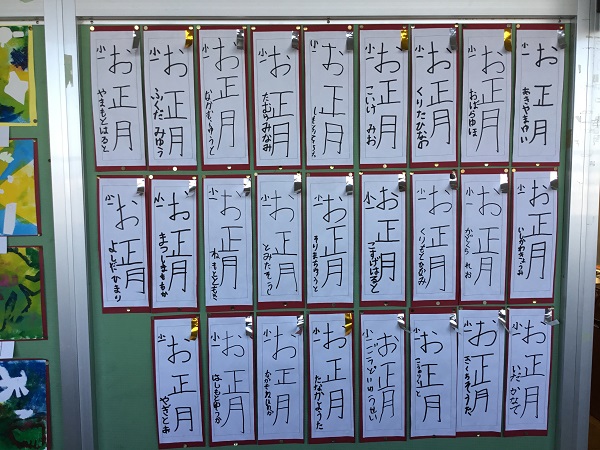 お正月
小一
やまもとはると
お正月
小一
ふくだ みゆう
お正月
小一
お正月
小一
たむらみなみ
お正月
小一
お正月
小一
こいけ みお
お正月
小一
くりたひなお
お正月
小一
おばらゆほ
お正月
小一
あきやまゆい
お正月
小一
よしだひまり
お正月
小一
まつしまももか
お正月
小一
お正月
小一
とみたそうし
お正月
小一
そりまちゆうと
お正月
小一
こすげはると
お正月
小一
お正月
小一
かどくら れお
お正月
小一
お正月
小一
やぎとあ
お正月
小一
はしもとゆうか
お正月
小一
お正月
小一
たなかようた
お正月
小一
お正月
小一
お正月
小一
さくちそうた
お正月
小一
いいだ かなで